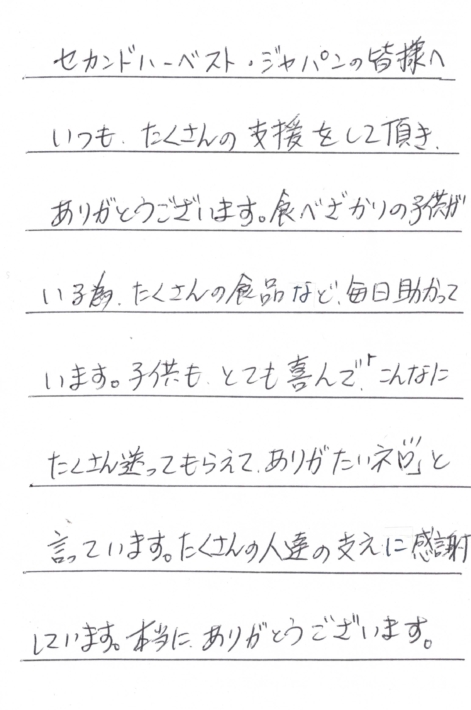 セカンドハーベスト・ジャパンの皆様へ
いつも、たくさんの支援をして頂き、
ありがとうございます。食べざかりの子供が
いる為、たくさんの食品など、毎日助かって
います。子供も、とても喜んで、「こんなに
たくさん送ってもらえて、ありがたいネ」と
言っています。たくさんの人達の支えに感謝
しています。本当に、ありがとうございます。